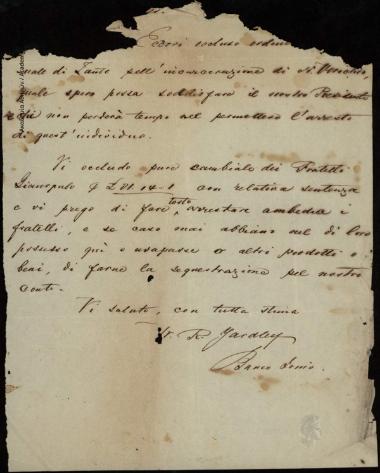 Eccovi occluso ordine
suale di Zante pell'incarcerazione di
quale spero possa soddisfare il nostro Presidente
e che non perderà tempo nel permettere l'arresto
di quest'individuo.
Vi occludo pure cambiale dei Fratelli
con relativa sentenza
e vi prego di fare tosto arrestare ambedue i
fratelli, e se caso mai abbiano nel di loro
possesso quì o uvapasse o altri prodotti o
beni, di farne la sequestrazione pel nostro
conto.
Vi saluto, con tutta stima
R. Yardley
Banco Ionio.